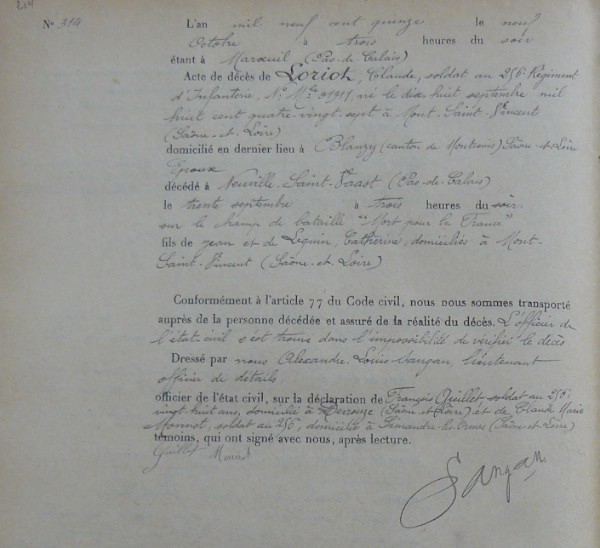 214
N° 314
L'an mil neuf cent quinze le neuf
Octobre à trois heures du soir
étant à Maroeuil (Pas-de-Calais)
Acte de décès de Loriot, Claude, soldat au 256e Régiment
d'Infanterie, N° Mle né le dix huit septembre mil
huit cent quatre-vingt-sept à Mont-Saint-Vincent
(Saône-et-Loire)
domicilié en dernier lieu à Blanzy (canton de Montcenis) Saône-et-Loire
Epoux
décédé à Neuville-Saint-Vaast (Pas-de-Calais)
le trente septembre à trois heures du soir
sur le champ de bataille "Mort pour la France"
fils de Jean et de Seguin, Catherine, domiciliés à Mont-
Saint-Vincent (Saône-et-Loire)
Conformément à l'article 77 du Code civil, nous nous sommes transporté
auprès de la personne décédée et assuré de la réalité du décès. L'officier de
l'état civil s'est trouvé dans l'impossibilité de vérifier le décès
Dressé par nous Alexandre Louis Sangan, lieutenant
officier de détails
officier de l'état civil, sur la déclaration de François Guillet, soldat au 256e
vingt huit ans, domicilié à (Saône et Loire) et de Claude Marie
Monnot, soldat au 256, domicilié à (Saône et Loire)
témoins, qui ont signé avec nous, après lecture.
Guillet Monnot
Sangan